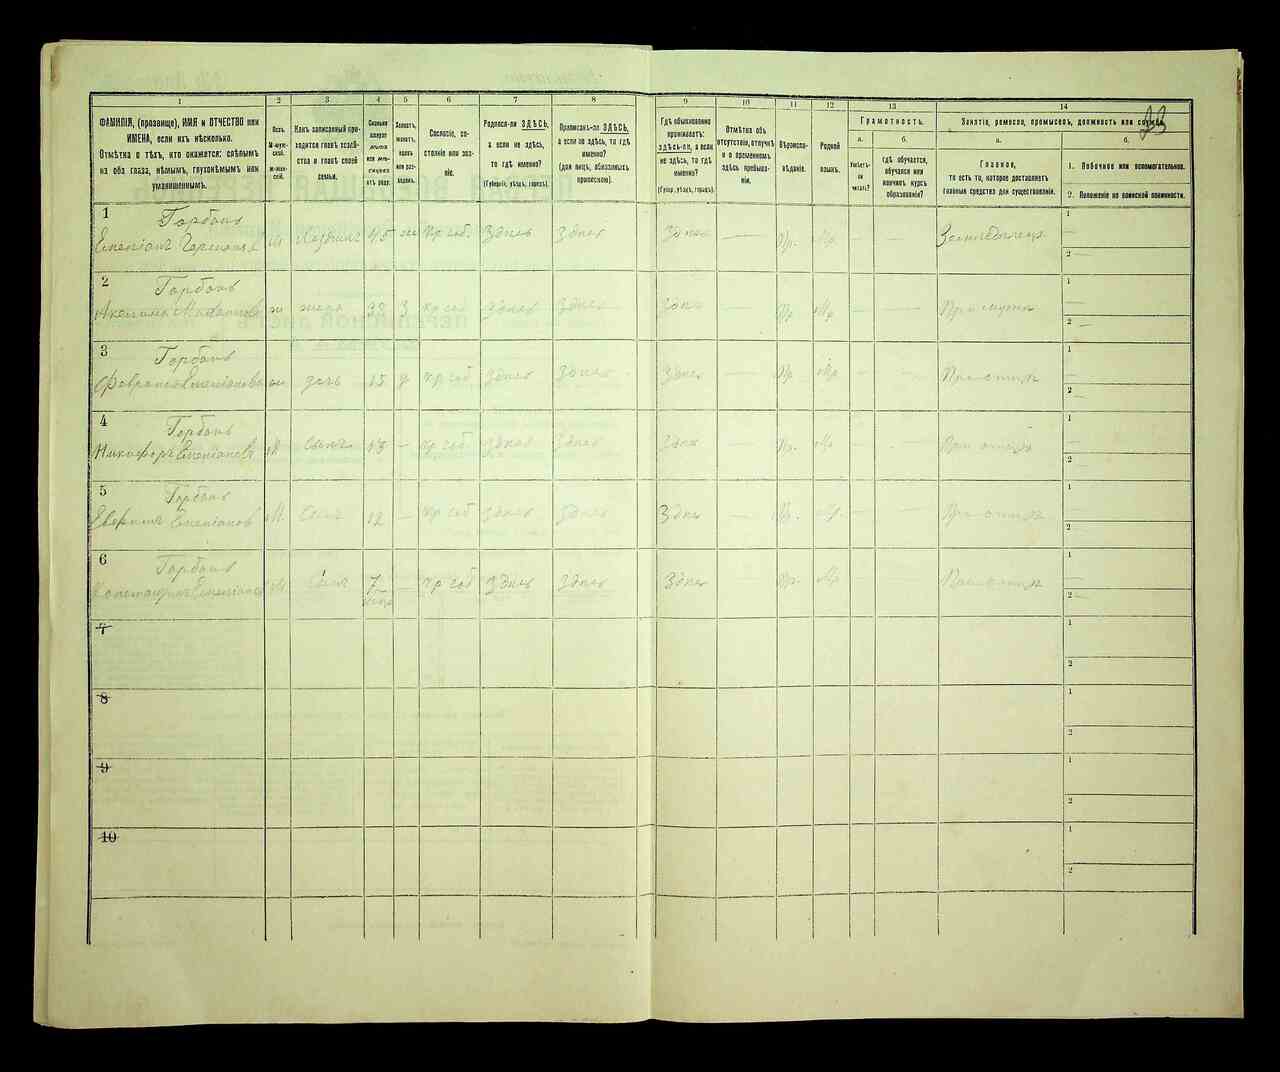 23
1 2 3 4 5 6 7 8 9 10 11 12 13 14
ФАМИЛІЯ, (прозвище), ИМЯ и ОТЧЕСТВО или
ИМЕНА, если ихъ нѣсколько.
Отмѣтка о тѣхъ, кто окажется: слѣпымъ
на оба глаза, нѣмымъ, глухонѣмымъ или
умалишеннымъ.
Полъ.
М-муж-
ской.
Ж-жен-
скій.
Какъ записанный при-
ходится главѣ хозяй-
ства и главѣ своей
семьи.
Сколько
минуло
лѣтъ
или мѣ-
сяцевъ
отъ роду.
Холостъ,
женатъ,
вдовъ
или раз-
веденъ.
Сословіе, со-
стояніе или зва-
ніе.
Родился-ли ЗДѢСЬ,
а если не здѣсь,
то гдѣ именно?
(Губернія, уѣздъ, городъ).
Приписанъ-ли ЗДѢСЬ,
а если не здѣсь, то гдѣ
именно?
(для лицъ, обязанныхъ
припискою).
Гдѣ обыкновенно
проживаетъ:
здѣсь-ли, а если
не здѣсь, то гдѣ
именно?
(Губер., уѣздъ, городъ).
Отмѣтка объ
отсутствіи, отлучкѣ
и о временномъ
здѣсь пребыва-
ніи.
Вѣроиспо-
вѣданіе.
Родной
языкъ.
Грамотность.
а.
Умѣетъ-
ли
читать?
б.
гдѣ обучается,
обучался или
кончилъ курсъ
образованія?
Занятіе, ремесло, промыселъ, должность или служба.
а.
Главное,
то есть то, которое доставляетъ
главныя средства для существованія.
б.
1. Побочное или вспомогательное.
2. Положеніе по воинской повинности.
1 Горбань
М 45 ж Кр соб. Здѣсь Здѣсь Здѣсь — Пр. Мр. — — 1 —
2 —
2 Горбань
ж жена 38 З кр соб Здѣсь Здѣсь Здѣсь — Пр Мр — — При мужѣ 1 —
2 —
3 Горбань
ж дочь 15 д кр соб Здѣсь Здѣсь Здѣсь — Пр Мр — — При отцѣ 1 —
2 —
4 Горбань
Никифоръ М Сынъ 13 — кр соб Здѣсь Здѣсь Здѣсь — Пр. Мр — — При отцѣ 1 —
2 —
5 Горбань
М. Сынъ 12 — кр соб Здѣсь Здѣсь Здѣсь — Пр. Мр. — — При отцѣ 1 —
2
6 Горбань
М Сынъ 7 — кр соб Здѣсь Здѣсь Здѣсь — Пр. Мр При отцѣ 1 —
2 —
7 1
2
8 1
2
9 1
2
10 1
2